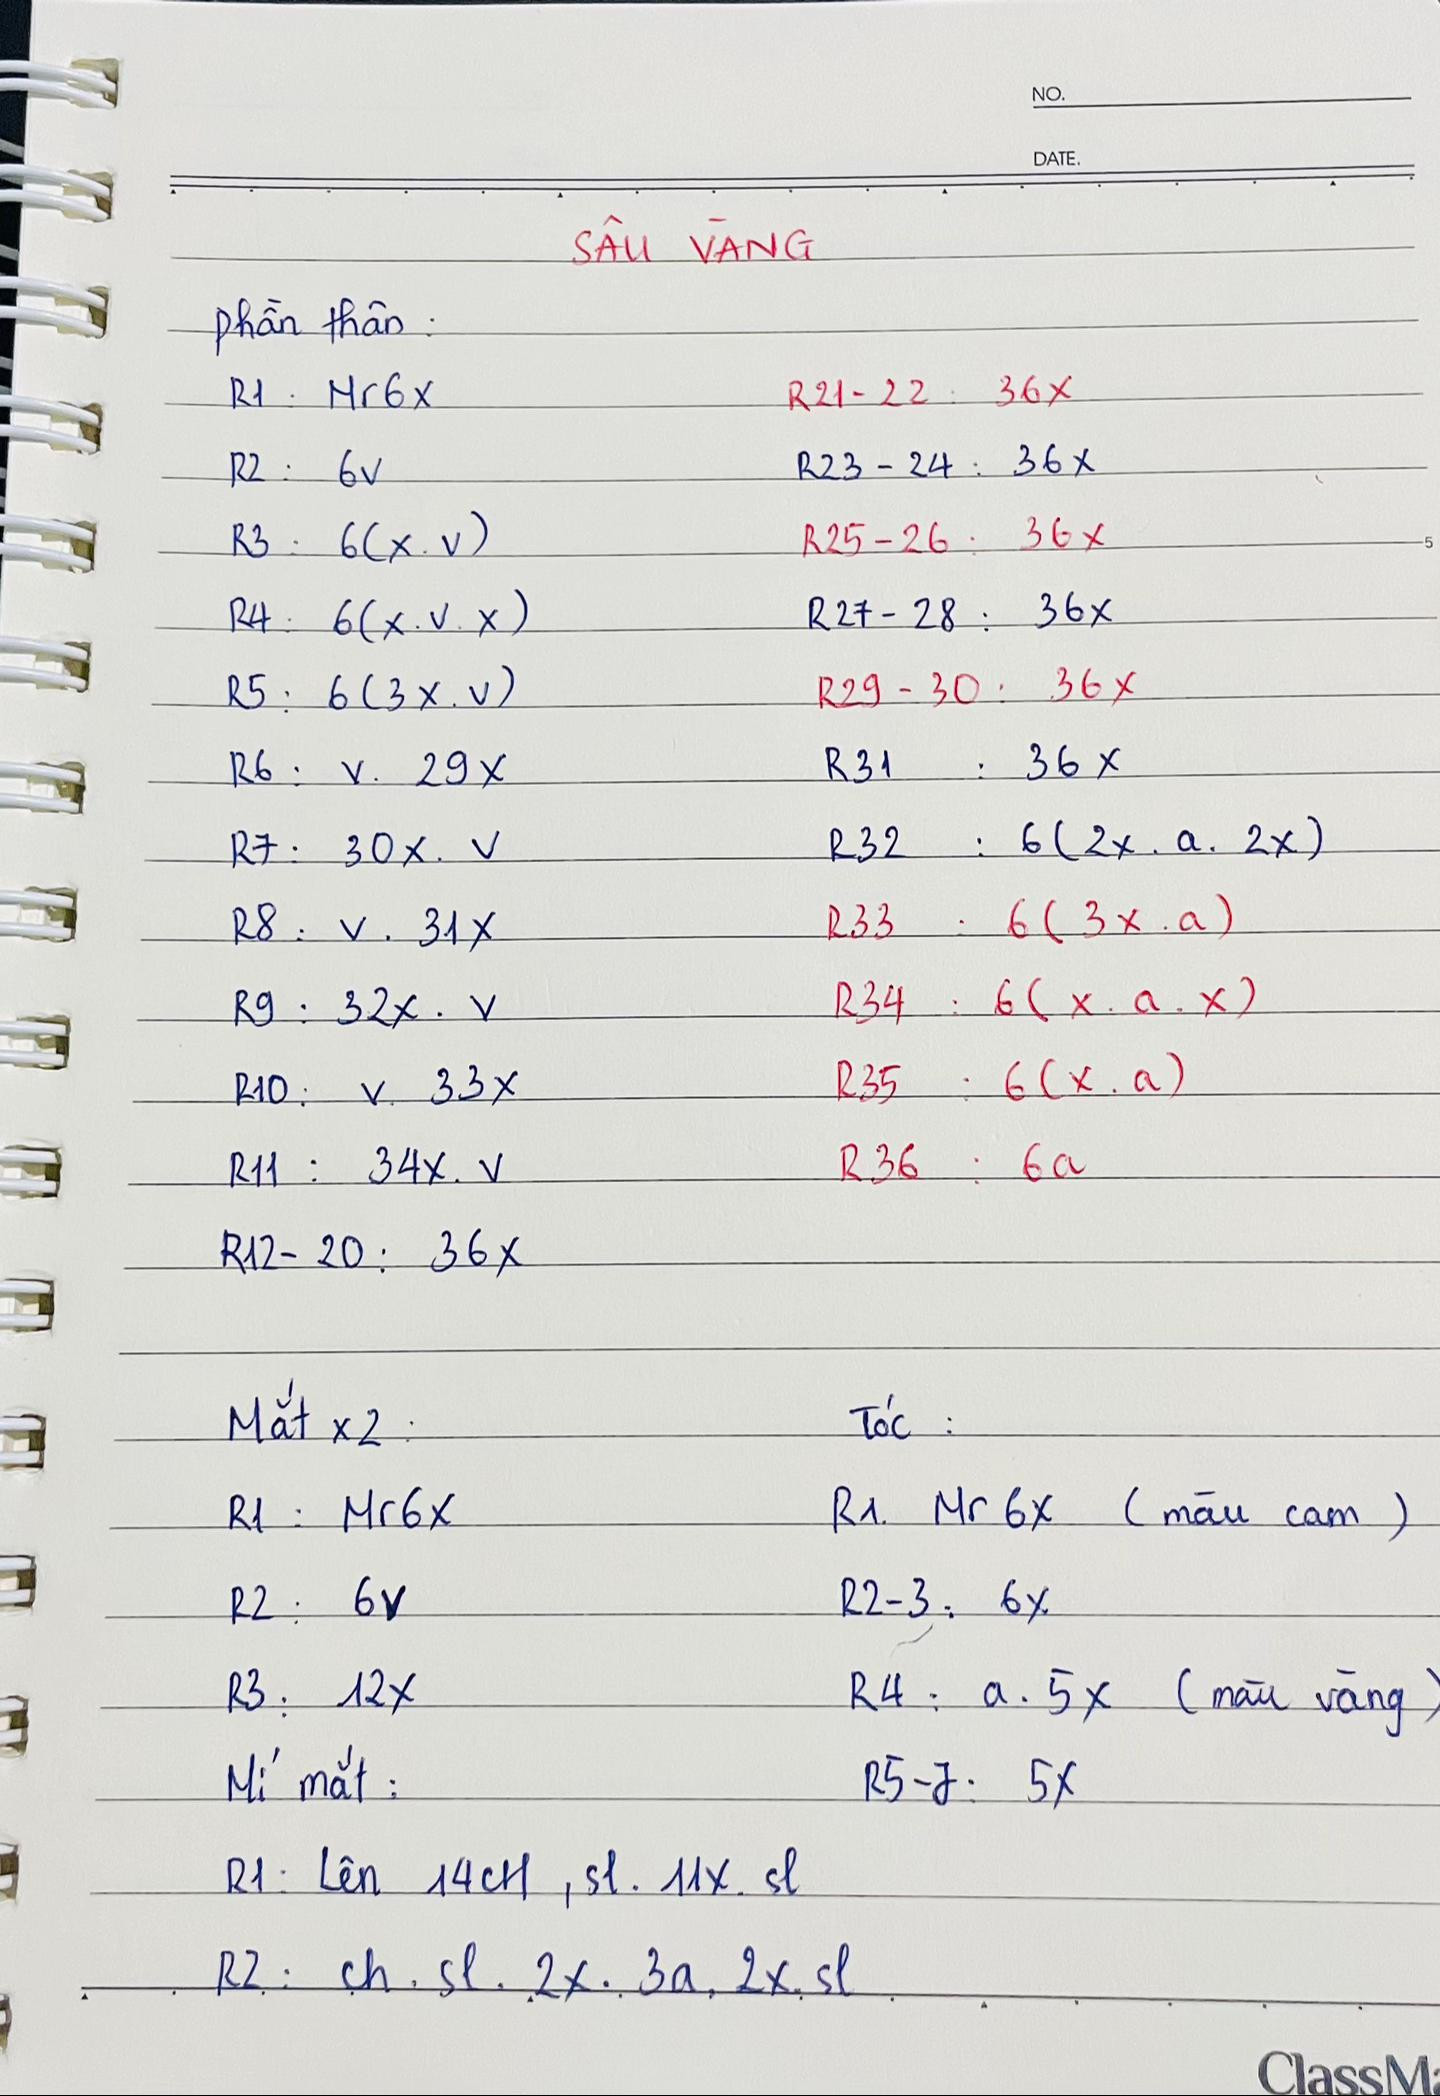 NO.
DATE.
SÂU VÀNG
phần thân :
R1 : Mr6x
R2 : 6v
R3 : 6(x.v)
R4 : 6(x.v.x)
R5 : 6(3x.v)
R6 : v. 29x
R7 : 30x. v
R8 : v. 31x
R9 : 32x. v
R10 : v. 33x
R11 : 34x. v
R12-20 : 36x
R21-22 : 36x
R23-24 : 36x
R25-26 : 36x
R27-28 : 36x
R29-30 : 36x
R31 : 36x
R32 : 6(2x. a. 2x)
R33 : 6(3x.a)
R34 : 6(x.a.x)
R35 : 6(x.a)
R36 : 6a
5
Mắt x2 :
R1 : Mr6x
R2 : 6v
R3 : 12x
Mí mắt :
R1 : Lên 14cH, sl. 11x. sl
R2 : ch. sl. 2x. 3a. 2x. sl
Tóc :
R1. Mr 6x (màu cam)
R2-3 : 6x
R4 : a. 5x (màu vàng)
R5-7 : 5x
ClassMa